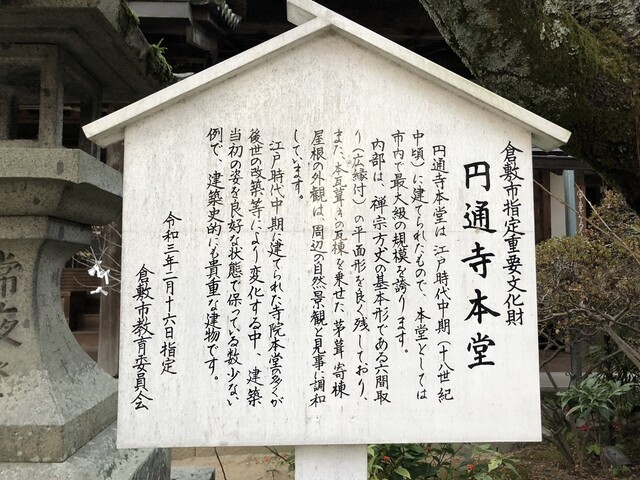 倉敷市指定重要文化財
円通寺本堂
円通寺本堂は江戸時代中期（十八世紀
中頃）に建てられたもので、本堂としては
市内で最大級の規模を誇ります。
内部は、禅宗方丈の基本形である六間取
り（広縁付）の平面形を良く残しており、
また、本瓦葺きの瓦棟を乗せた茅葺寄棟
屋根の外観は、周辺の自然景観と見事に調和
しています。
江戸時代中期に建てられた寺院本堂の多くが
後世の改築等により変化する中、建築
当初の姿を良好な状態で保っている数少ない
例で、建築史的にも貴重な建物です。
令和三年二月十六日指定
倉敷市教育委員会
常夜